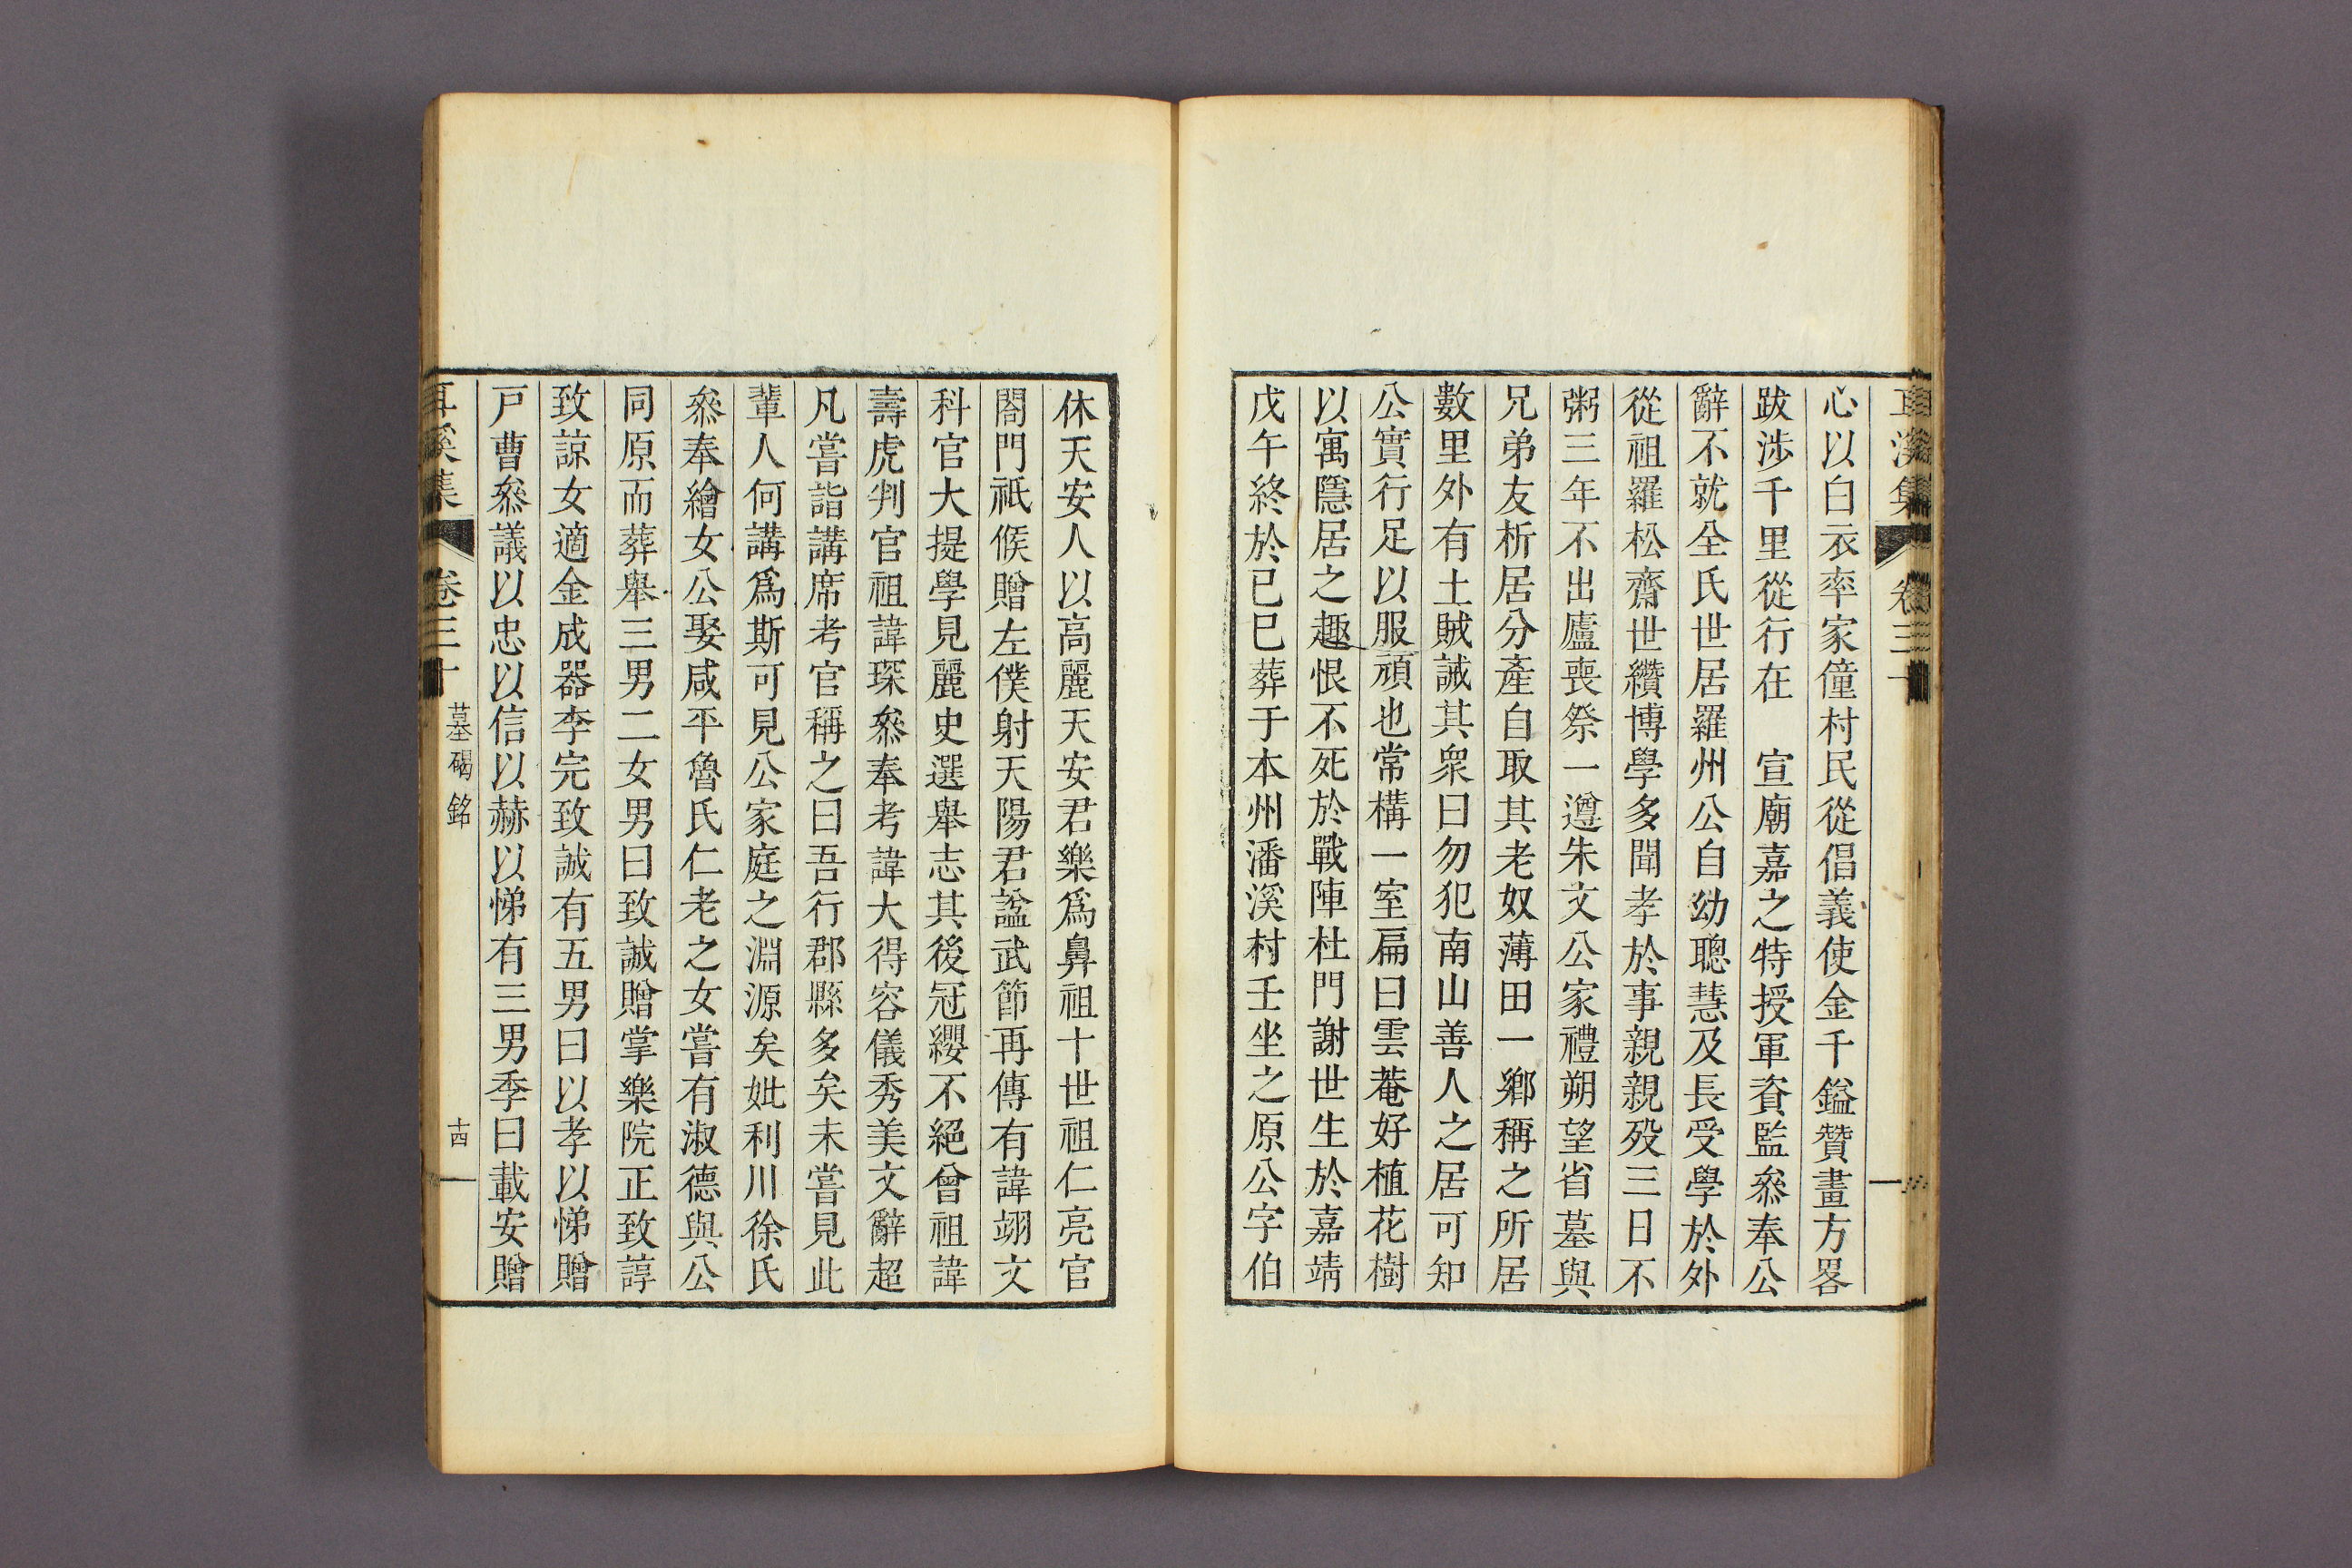 耳溪集 卷三十
心以白衣率家僮村民從倡義使金千鎰贊畫方畧
跋涉千里從行在 宣廟嘉之特授軍資監叅奉公
辭不就全氏世居羅州公自幼聰慧及長受學於外
從祖羅松齋世纘博學多聞孝於事親親歿三日不
粥三年不出廬喪祭一遵朱文公家禮朔望省墓與
兄弟友析居分產自取其老奴薄田一鄉稱之所居
數里外有土賊誡其衆曰勿犯南山善人之居可知
公實行足以服頑也常構一室扁曰雲菴好植花樹
以寓隱居之趣恨不死於戰陣杜門謝世生於嘉靖
戊午終於己巳葬于本州潘溪村壬坐之原公字伯
休天安人以高麗天安君樂爲鼻祖十世祖仁亮官
閤門祗候贈左僕射天陽君諡武節再傳有諱翊文
科官大提學見麗史選舉志其後冠纓不絕曾祖諱
壽虎判官祖諱琛叅奉考諱大得容儀秀美文辭超
凡嘗詣講席考官稱之曰吾行郡縣多矣未嘗見此
輩人何講爲斯可見公家庭之淵源矣妣利川徐氏
叅奉繪女公娶咸平魯氏仁老之女嘗有淑德與公
同原而葬舉三男二女男曰致誠贈掌樂院正致諄
致諒女適金成器李完致誠有五男曰以孝以悌贈
戸曹叅議以忠以信以赫以悌有三男季曰載安贈
耳溪集 卷三十 墓碣銘 十四